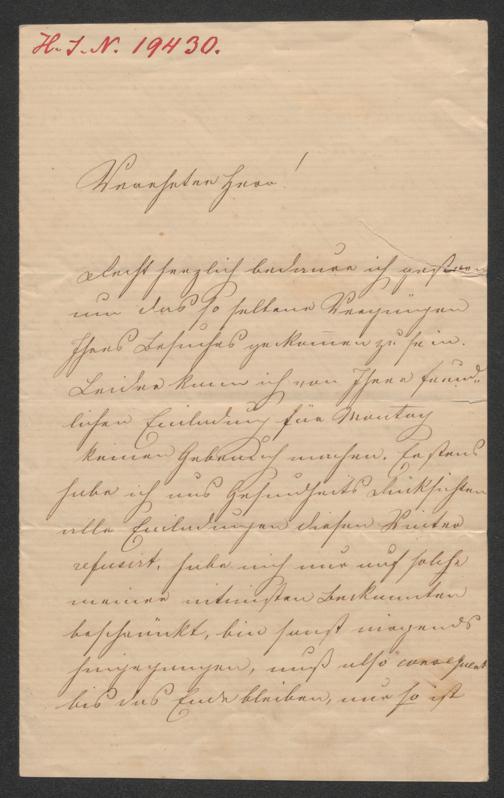 H. I. N. 19430.
Verehrter Herr!
Recht herzlich bedaure ich gestern
um das so seltene Vergnügen
Ihres Besuches gekommen zu sein.
Leider kann ich von Ihrer freund-
lichen Einladung für Montag
keinen Gebrauch machen. Erstens
habe ich aus Gesundheits Rücksichten
alle Einladungen diesen Winter
refusirt, habe mich nur auf solche
meiner intimsten Bekannten
beschränkt, bin sonst nirgends
hingegangen, muß also consequent
bis das Ende bleiben, nur so ist